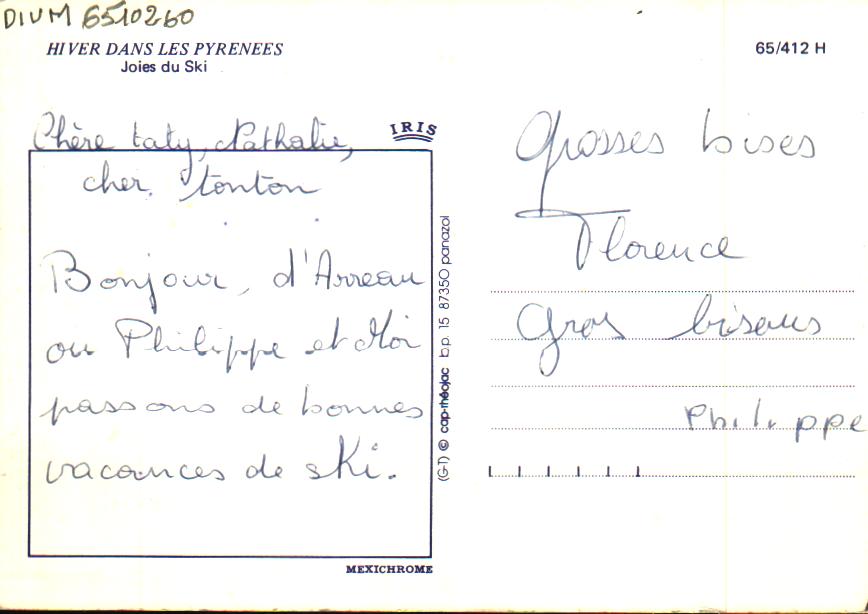 DIVM 6510260
HIVER DANS LES PYRENEES
Joies du Ski
65/412 H
IRIS
Chère taty, Nathalie,
cher tonton
Bonjour, d'Arreau
ou Philippe et Moi
passons de bonnes
vacances de ski.
(G-T) © cap-théojac b.p. 15 87350 panazol
MEXICHROME
Grosses bises
Florence
Gros bisous
Philippe